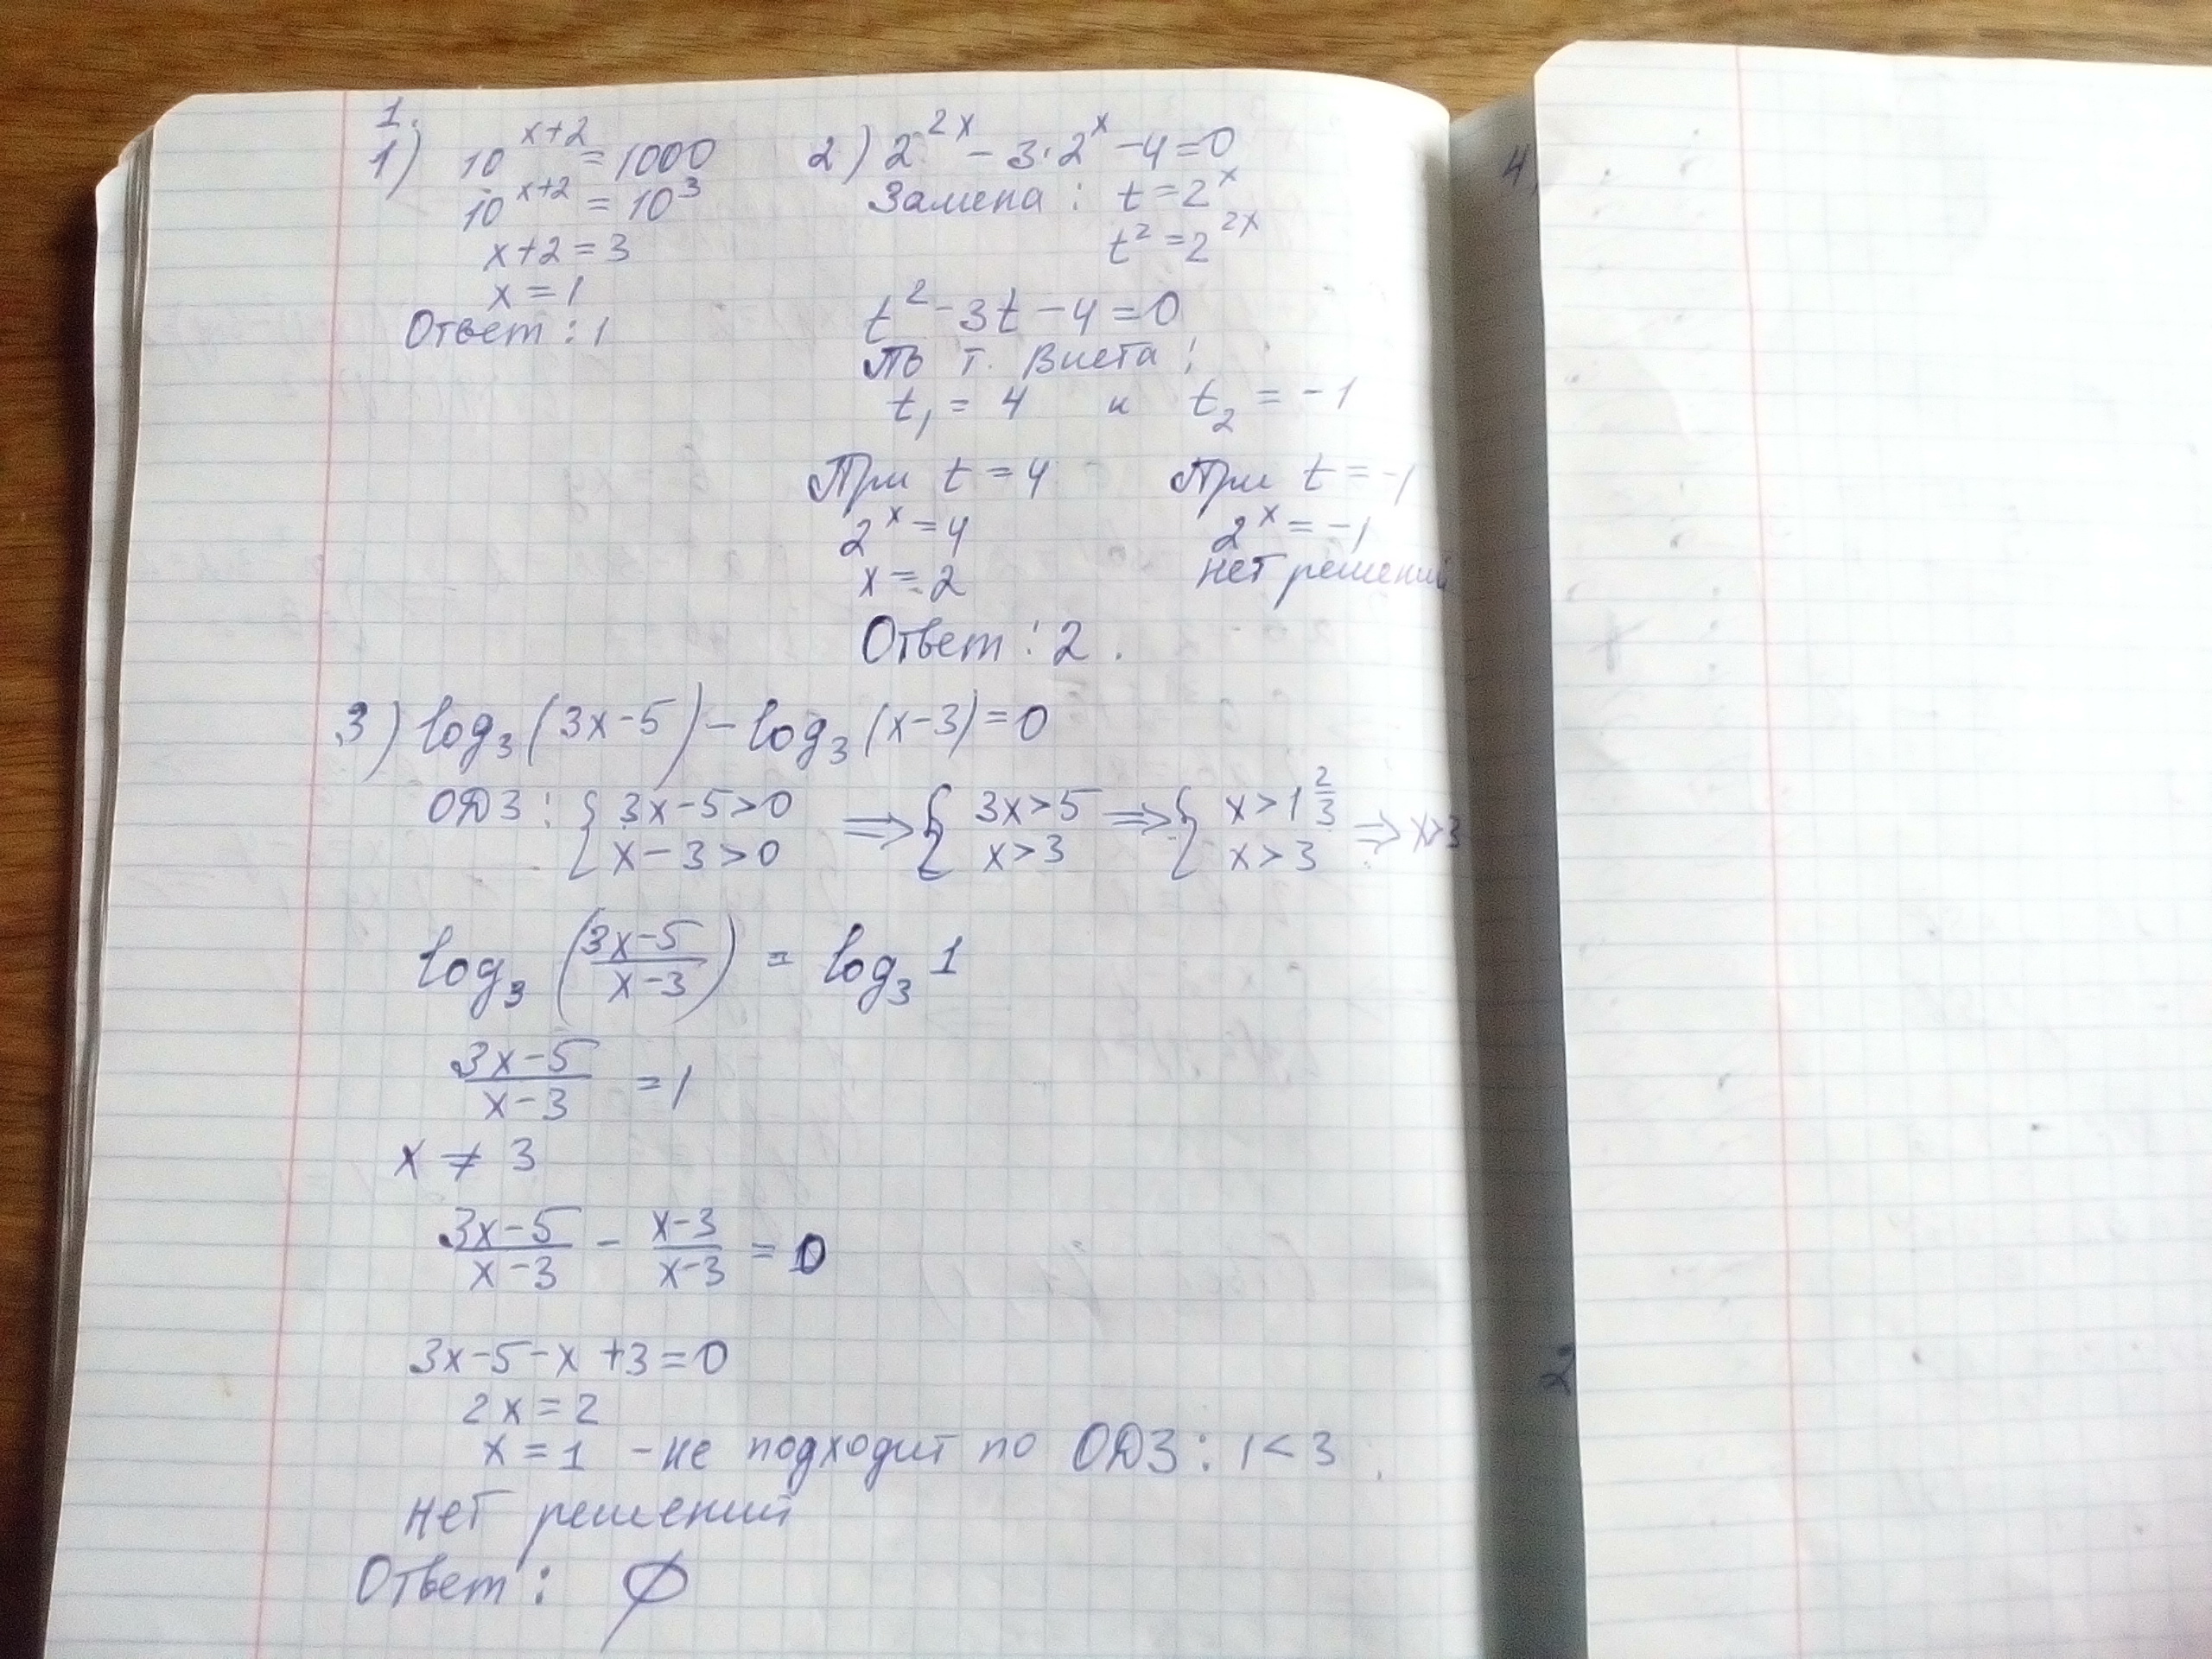 1.
1) 10^{x+2} = 1000
10^{x+2} = 10^3
x+2 = 3
x = 1
Ответ: 1
2) 2^{2x} - 3·2^x - 4 = 0
Замена: t = 2^x
t^2 = 2^{2x}
t^2 - 3t - 4 = 0
По т. Виета:
t_1 = 4 и t_2 = -1
При t = 4
2^x = 4
x = 2
При t = -1
2^x = -1
нет решений
Ответ: 2.
3) log_3(3x-5) - log_3(x-3) = 0
ОДЗ: { 3x-5>0 ⇒ { 3x>5 ⇒ { x>1 2/3 ⇒ x>3
x-3>0 x>3 x>3
log_3 ((3x-5)/(x-3)) = log_3 1
(3x-5)/(x-3) = 1
x ≠ 3
(3x-5)/(x-3) - (x-3)/(x-3) = 0
3x-5-x+3=0
2x = 2
x = 1 - не подходит по ОДЗ: 1<3.
нет решений
Ответ: ∅
4)
2